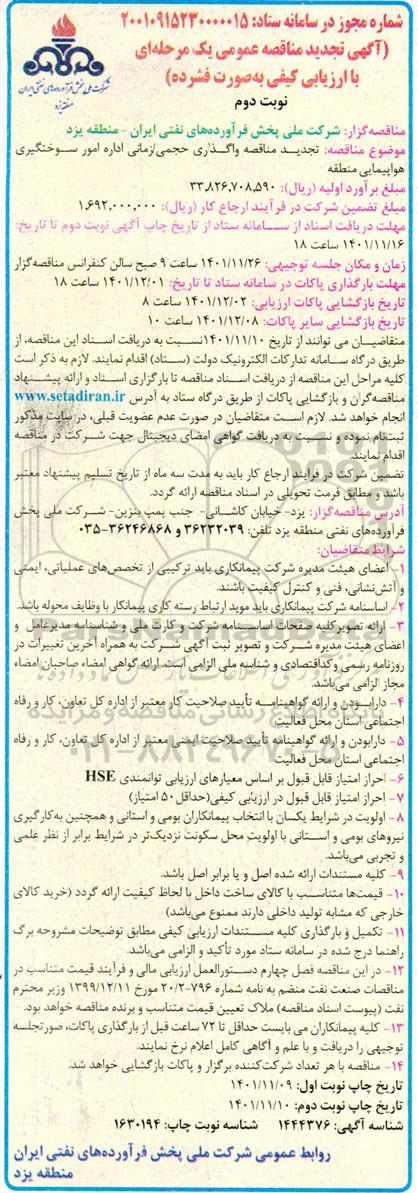 شماره مجوز در سامانه ستاد: ۲۰۰۱۰۹۱۵۲۳۰۰۰۰۰۱۵
(آگهی تجدید مناقصه عمومی یک مرحله‌ای
با ارزیابی کیفی به‌صورت فشرده)
شرکت ملی پخش فرآورده‌های نفتی ایران
منطقه یزد
نوبت دوم
مناقصه‌گزار: شرکت ملی پخش فرآورده‌های نفتی ایران - منطقه یزد
موضوع مناقصه: تجدید مناقصه واگذاری حجمی/زمانی اداره امور سوختگیری
هواپیمایی منطقه
مبلغ برآورد اولیه (ریال): ۳۳,۸۲۶,۷۰۸,۵۹۰
مبلغ تضمین شرکت در فرآیند ارجاع کار (ریال): ۱,۶۹۲,۰۰۰,۰۰۰
مهلت دریافت اسناد از سامانه ستاد از تاریخ چاپ آگهی نوبت دوم تا تاریخ:
۱۴۰۱/۱۱/۱۶ ساعت ۱۸
زمان و مکان جلسه توجیهی: ۱۴۰۱/۱۱/۲۶ ساعت ۹ صبح سالن کنفرانس مناقصه‌گزار
مهلت بارگذاری پاکات در سامانه ستاد تا تاریخ: ۱۴۰۱/۱۲/۰۱ ساعت ۱۸
تاریخ بازگشایی پاکات ارزیابی: ۱۴۰۱/۱۲/۰۲ ساعت ۸
تاریخ بازگشایی سایر پاکات: ۱۴۰۱/۱۲/۰۸ ساعت ۱۰
متقاضیان می توانند از تاریخ ۱۴۰۱/۱۱/۱۰ نسبت به دریافت اسناد این مناقصه، از
طریق درگاه سامانه تدارکات الکترونیک دولت (ستاد) اقدام نمایند. لازم به ذکر است
کلیه مراحل این مناقصه از دریافت اسناد مناقصه تا بارگزاری اسناد و ارائه پیشنهاد
مناقصه‌گران و بازگشایی پاکات از طریق درگاه ستاد به آدرس www.setadiran.ir
انجام خواهد شد. لازم است متقاضیان در صورت عدم عضویت قبلی، در سایت مذکور
ثبت‌نام نموده و نسبت به دریافت گواهی امضای دیجیتال جهت شرکت در مناقصه
اقدام نمایند.
تضمین شرکت در فرایند ارجاع کار باید به مدت سه ماه از تاریخ تسلیم پیشنهاد معتبر
باشد و مطابق فرمت تحویلی در اسناد مناقصه ارائه گردد.
آدرس مناقصه‌گزار: یزد- خیابان کاشانی- جنب پمپ بنزین- شرکت ملی پخش
فرآورده‌های نفتی منطقه یزد تلفن: ۳۶۲۳۲۰۳۹ و ۳۶۲۴۶۸۶۸-۰۳۵
شرایط متقاضیان:
۱- اعضای هیئت مدیره شرکت پیمانکاری باید ترکیبی از تخصص‌های عملیاتی، ایمنی
و آتش‌نشانی، فنی و کنترل کیفیت باشند.
۲- اساسنامه شرکت پیمانکاری باید موید ارتباط رسته کاری پیمانکار با وظایف محوله باشد.
۳- ارائه تصویر کلیه صفحات اساسنامه شرکت و کارت ملی و شناسنامه مدیرعامل و
اعضای هیئت مدیره شرکت و تصویر ثبت آگهی شرکت به همراه آخرین تغییرات در
روزنامه رسمی و کداقتصادی و شناسه ملی الزامی است. ارائه گواهی امضاء صاحبان امضاء
مجاز الزامی می‌باشد.
۴- دارابودن و ارائه گواهینامه تأیید صلاحیت کار معتبر از اداره کل تعاون، کار و رفاه
اجتماعی استان محل فعالیت
۵- دارابودن و ارائه گواهینامه تأیید صلاحیت ایمنی معتبر از اداره کل تعاون، کار و رفاه
اجتماعی استان محل فعالیت
۶- احراز امتیاز قابل قبول بر اساس معیارهای ارزیابی توانمندی HSE
۷- احراز امتیاز قابل قبول در ارزیابی کیفی (حداقل ۵۰ امتیاز)
۸- اولویت در شرایط یکسان با انتخاب پیمانکاران بومی و استانی و همچنین به‌کارگیری
نیروهای بومی و استانی با اولویت محل سکونت نزدیک‌تر در شرایط برابر از نظر علمی
و تجربی می‌باشد.
۹- کلیه مستندات ارائه شده اصل و یا برابر اصل باشد.
۱۰- قیمت‌ها متناسب با کالای ساخت داخل با لحاظ کیفیت ارائه گردد (خرید کالای
خارجی که مشابه تولید داخلی دارند ممنوع می‌باشد)
۱۱- تکمیل و بارگذاری کلیه مستندات ارزیابی کیفی مطابق توضیحات مشروحه برگ
راهنما درج شده در سامانه ستاد مورد تأکید و الزامی می‌باشد.
۱۲- در این مناقصه فصل چهارم دستورالعمل ارزیابی مالی و فرآیند قیمت متناسب در
مناقصات صنعت نفت منضم به نامه شماره ۷۹۶-۲۰/۲ مورخ ۱۳۹۹/۱۲/۱۱ وزیر محترم
نفت (پیوست اسناد مناقصه) ملاک تعیین قیمت متناسب و برنده مناقصه خواهد بود.
۱۳- کلیه پیمانکاران می بایست حداقل تا ۷۲ ساعت قبل از بارگذاری پاکات، صورتجلسه
توجیهی را دریافت و با علم و آگاهی کامل اعلام نرخ نمایند.
۱۴- مناقصه با هر تعداد شرکت‌کننده برگزار و پاکات بازگشایی خواهد شد.
تاریخ چاپ نوبت اول: ۱۴۰۱/۱۱/۰۹
تاریخ چاپ نوبت دوم: ۱۴۰۱/۱۱/۱۰
شناسه آگهی: ۱۴۴۴۳۷۶ شناسه نوبت چاپ: ۱۶۳۰۱۹۴
روابط عمومی شرکت ملی پخش فرآورده‌های نفتی ایران
منطقه یزد